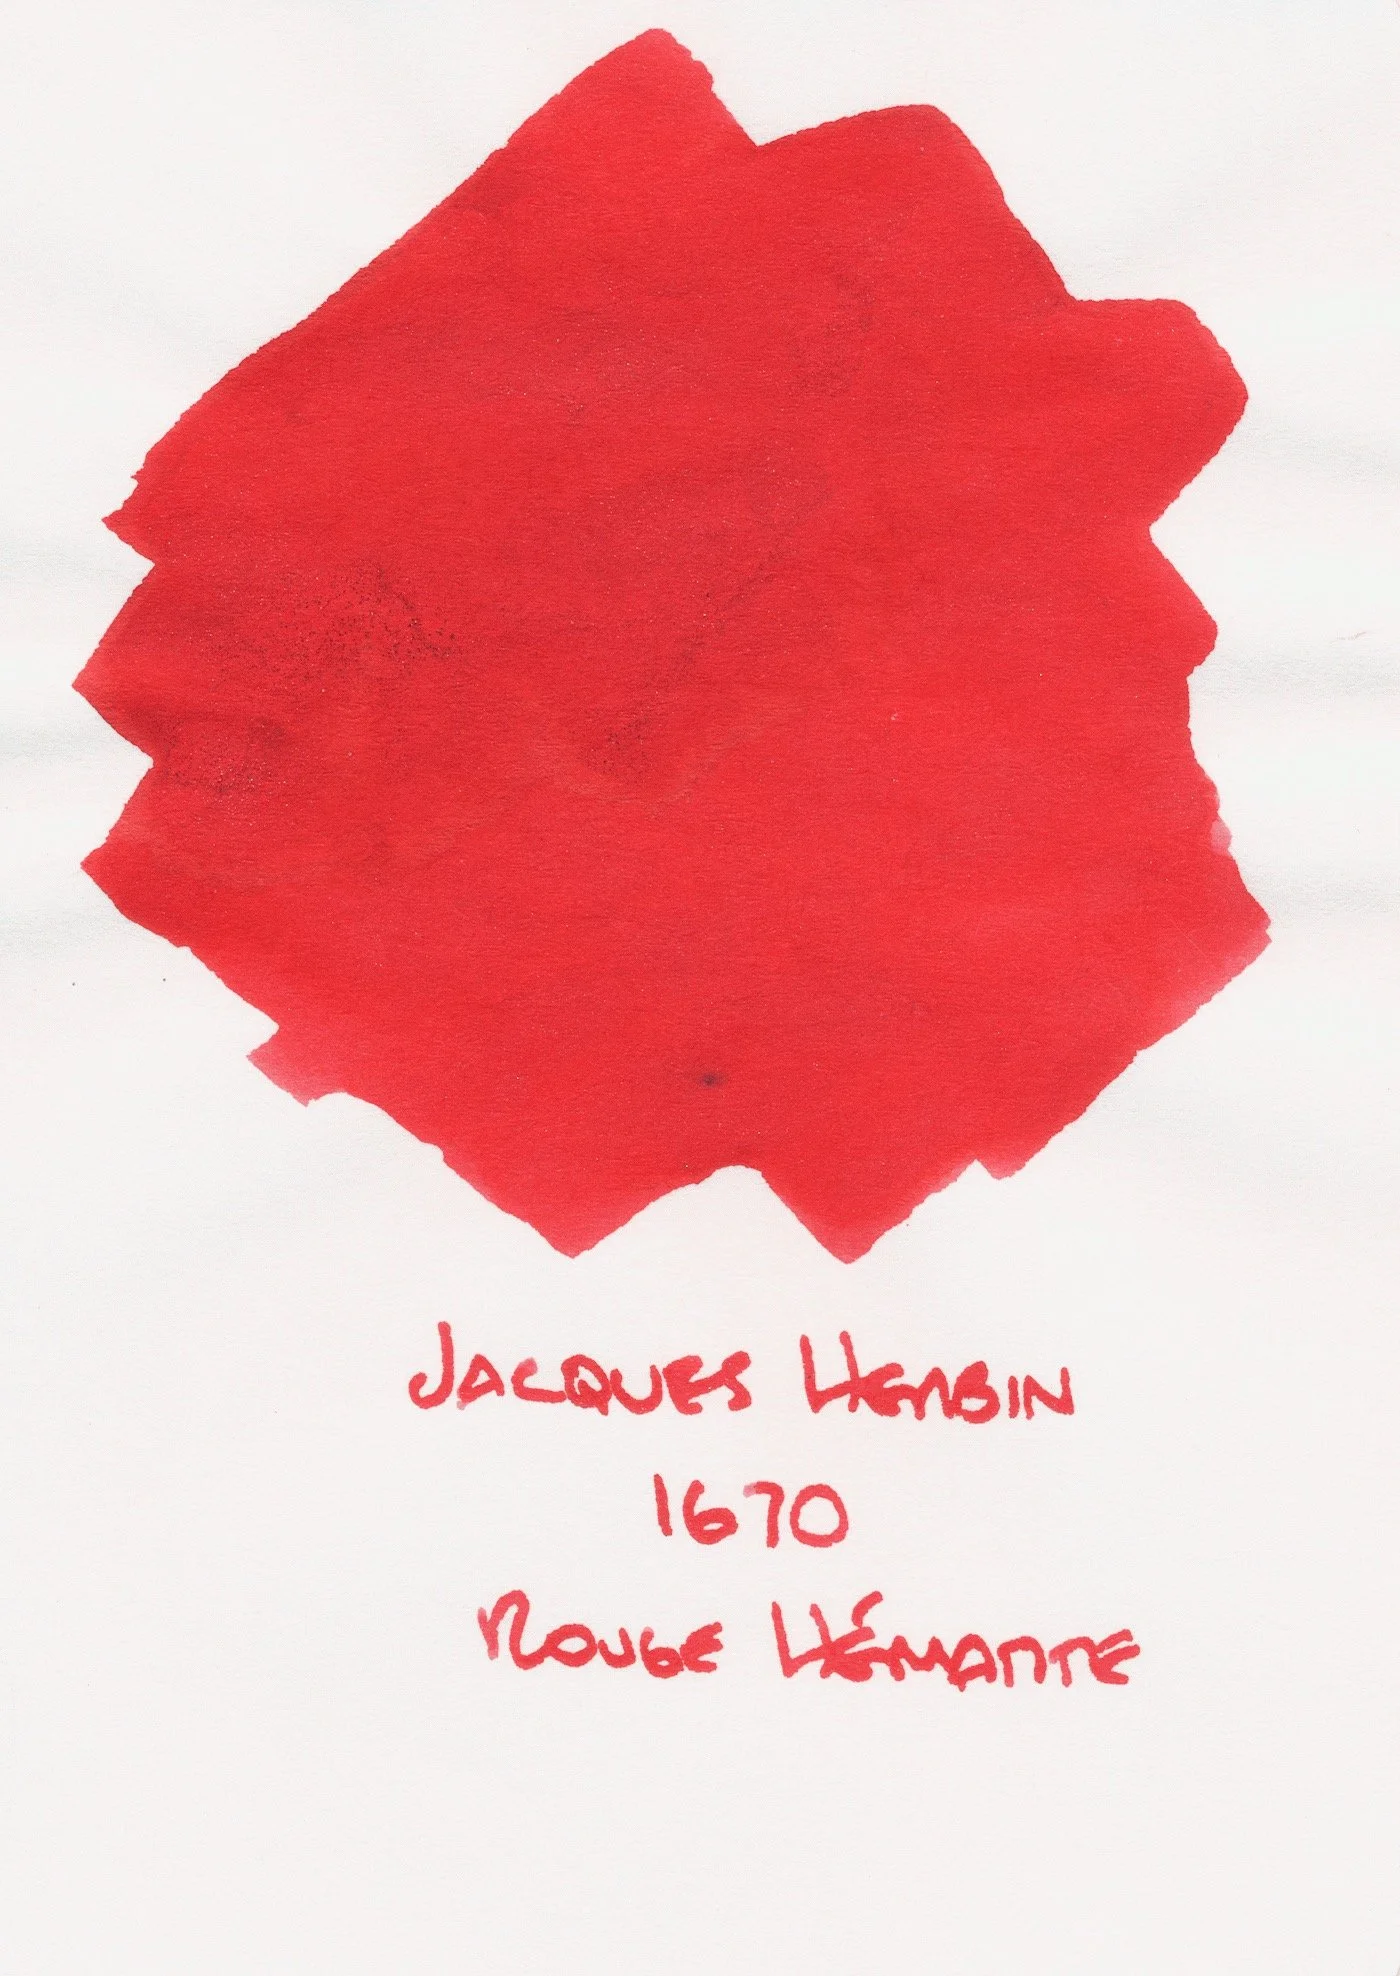 JACQUES HERBIN
1670
ROUGE HÉMATITE